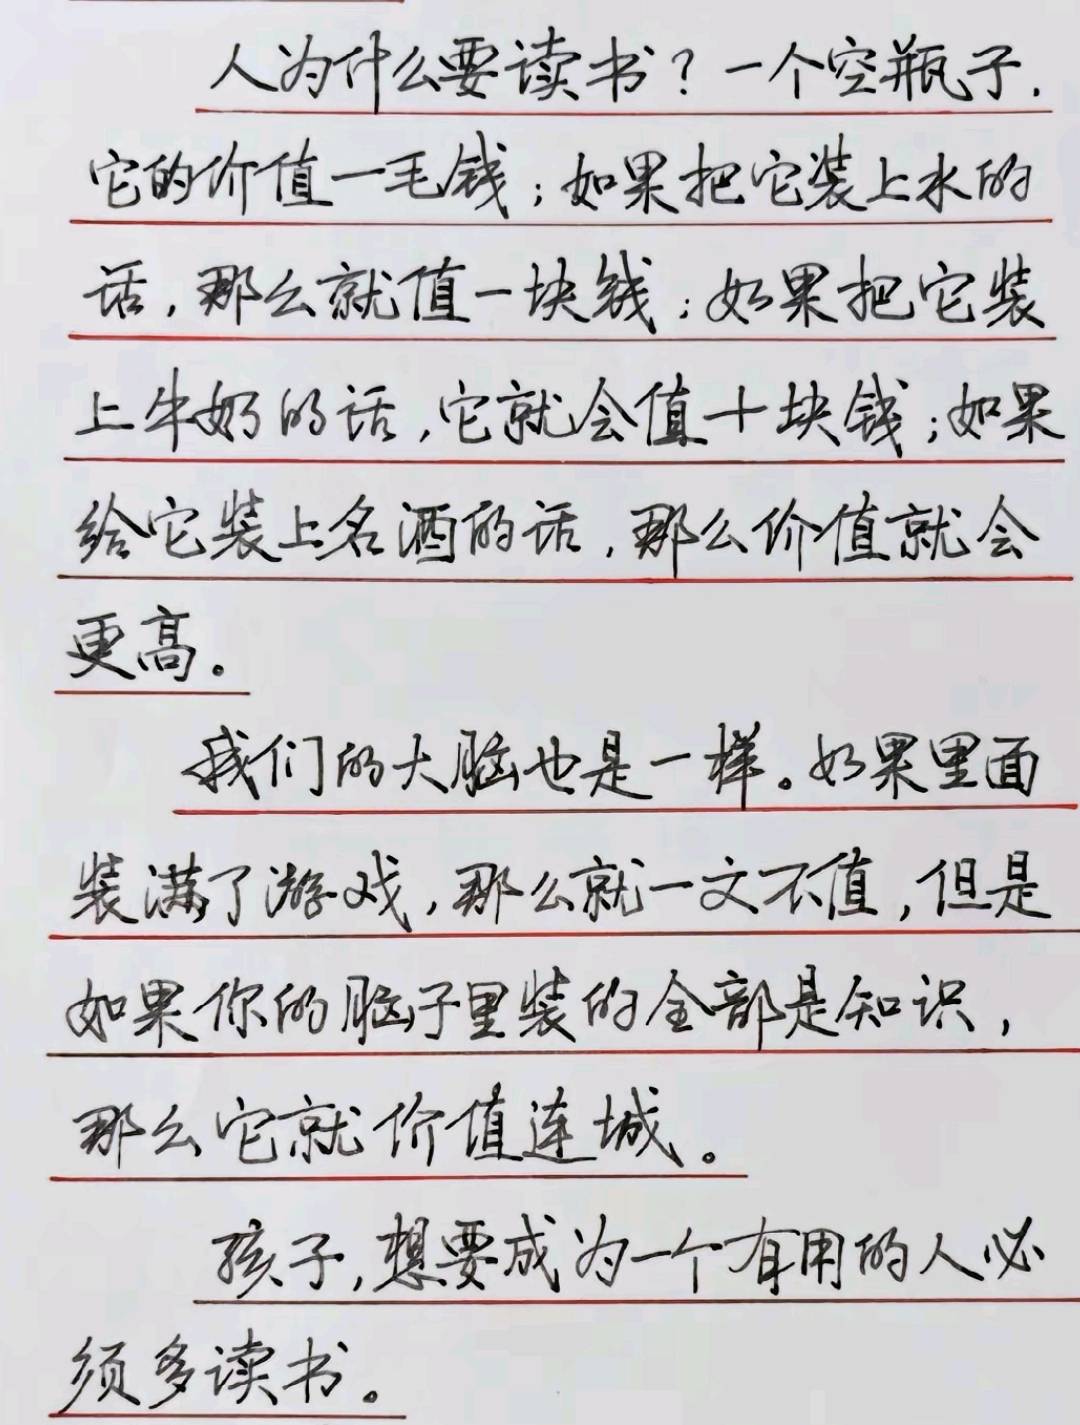 人为什么要读书？一个空瓶子.
它的价值一毛钱；如果把它装上水的
话，那么就值一块钱；如果把它装
上牛奶的话，它就会值十块钱；如果
给它装上名酒的话，那么价值就会
更高。
我们的大脑也是一样。如果里面
装满了游戏，那么就一文不值，但是
如果你的脑子里装的全部是知识，
那么它就价值连城。
孩子，想要成为一个有用的人必
须多读书。